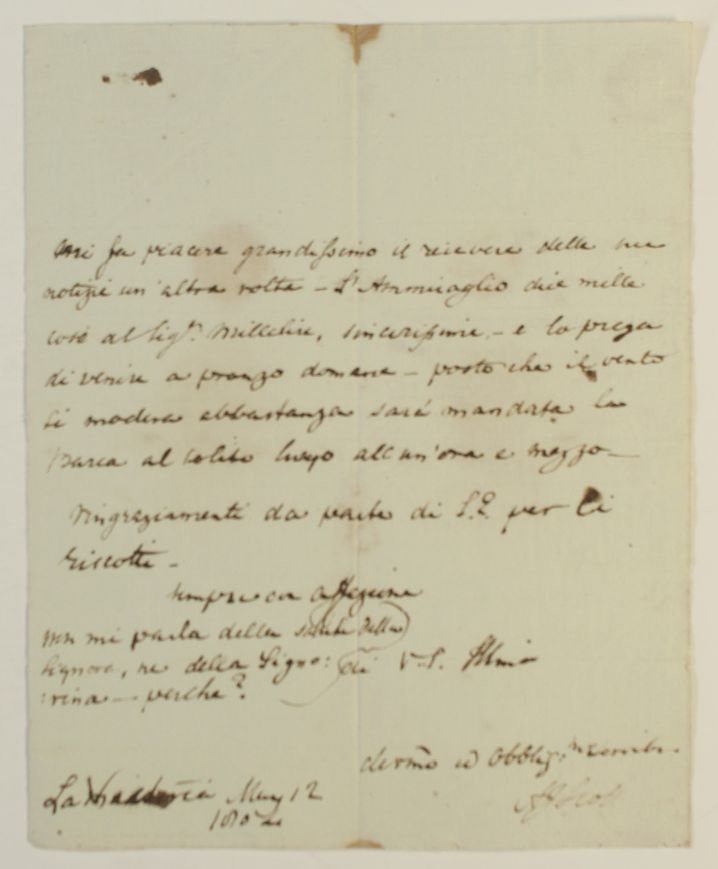 Mi fa piacere grandissimo il ricevere delle sue
notizie un'altra volta – L'Ammiraglio dice mille
cose al Sigr. Millelire, sincerissime – e lo prega
di venire a pranzo domane – posto che il vento
si modera abbastanza sarà mandata la
Barca al solito luogo all'un'ora e mezzo –
Ringraziamenti da parte di S.E. per li
biscotti –
sempre con affezione
non mi parla della salute della
Signora, ne della Signo:
rina – perche?
di V.S. Illma
devmo ed Obbligmo
La May 12